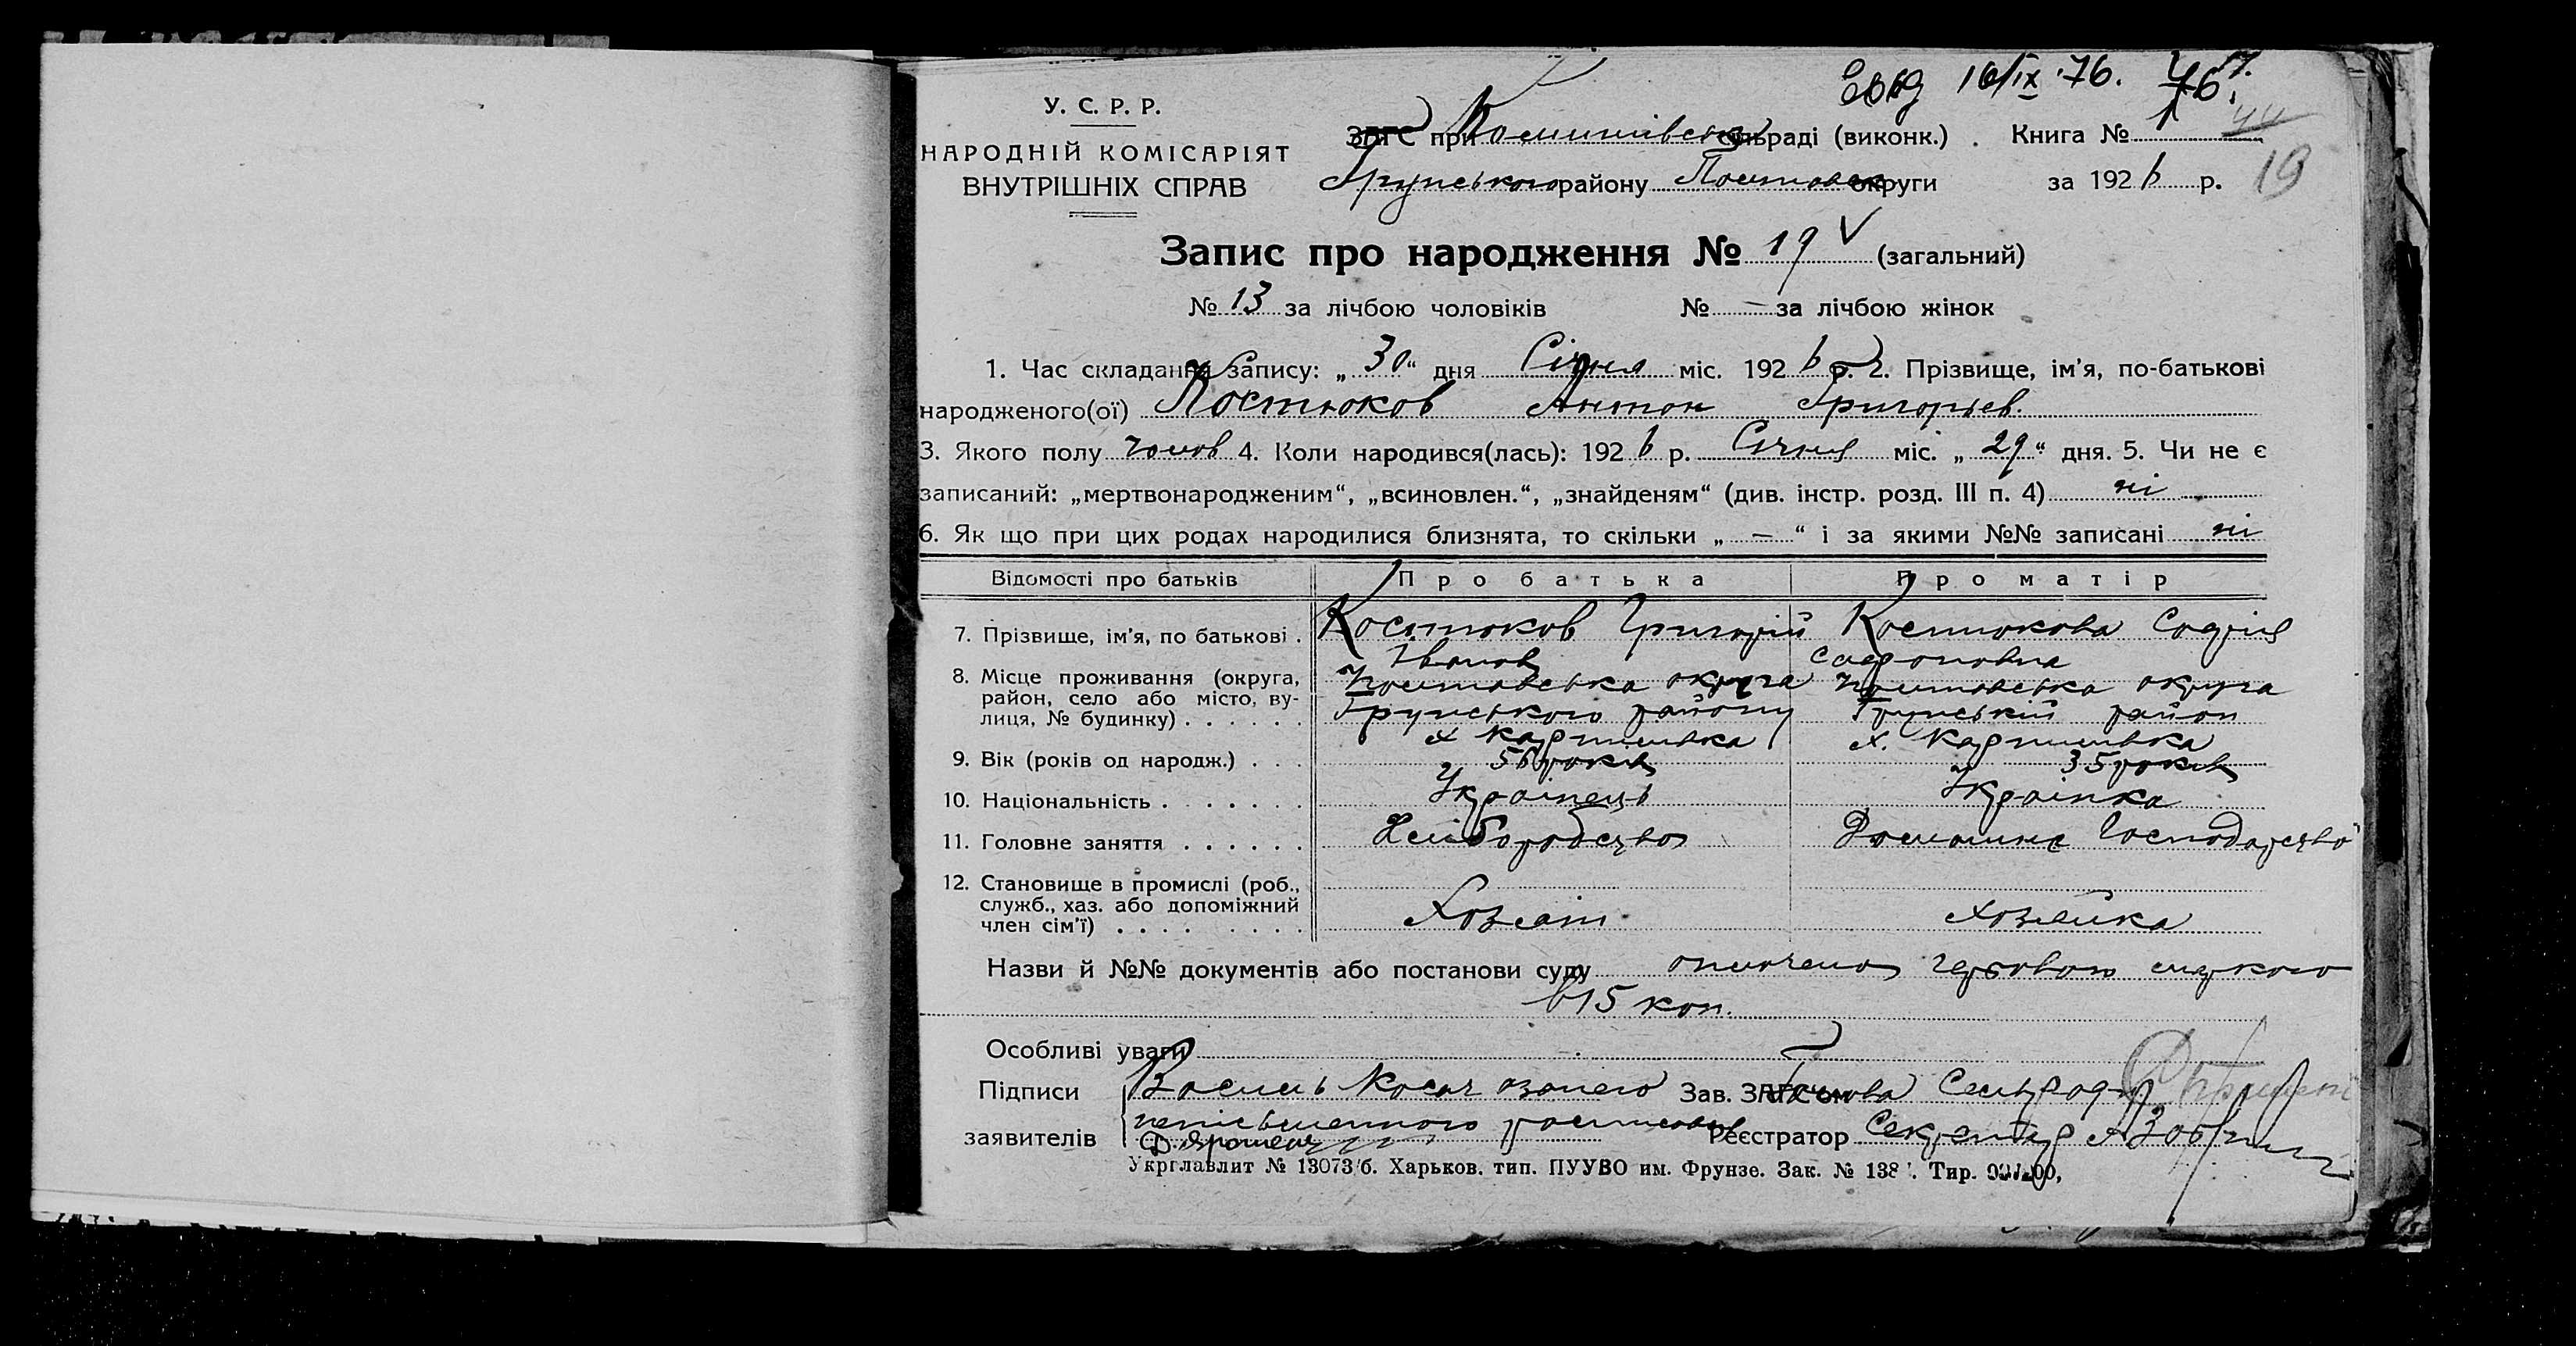 16/IX 76.
У. С. Р. Р.
НАРОДНІЙ КОМІСАРІЯТ
ВНУТРІШНІХ СПРАВ
ЗАГС при сільраді (виконк.) . Книга № 1
44
Грунського району Полтавськ округи за 1926 р. 19
Запис про народження № 19 V (загальний)
№ 13 за лічбою чоловіків № — за лічбою жінок
1. Час складання запису: „ 30 “ дня Січня міс. 1926 р. 2. Прізвище, ім’я, по-батькові
народженого(ої) Костюков Антон Григорьев.
3. Якого полу чолов 4. Коли народився(лась): 1926 р. Січня міс. „ 29 “ дня. 5. Чи не є
записаний: „мертвонародженим“, „всиновлен.“, „знайденям“ (див. інстр. розд. III п. 4) ні
6. Як що при цих родах народилися близнята, то скільки „ — “ і за якими №№ записані ні
Відомості про батьків Про батька Про матір
7. Прізвище, ім’я, по батькові . Костюков Григорій Іванов Костюкова Софія Сафоновна
8. Місце проживання (округа, район, село або місто, вулиця, № будинку) . . . . . . Полтавська округа Грунського району х Карпилівка Полтавська округа Грунській район х. Карпилівка
9. Вік (років од народж.) . . . 56 років 35 років
10. Національність . . . . . . . Українець Українка
11. Головне заняття . . . . . . Хліборобство Домашнє Господарство
12. Становище в промислі (роб., служб., хаз. або допоміжний член сім’ї) . . . . . . . . Хозяїн Хозяйка
Назви й №№ документів або постанови суду оплочено гербовою маркою
в 15 коп.
Особливі уваги
Підписи Косач Зав. ЗАГС’ом Голова Сельради
заявителів неписьменного росписався Реєстратор Секретарь
Д. Ярошенк
Укрглавлит № 13073/б. Харьков. тип. ПУУВО им. Фрунзе. Зак. № 138 . Тир.